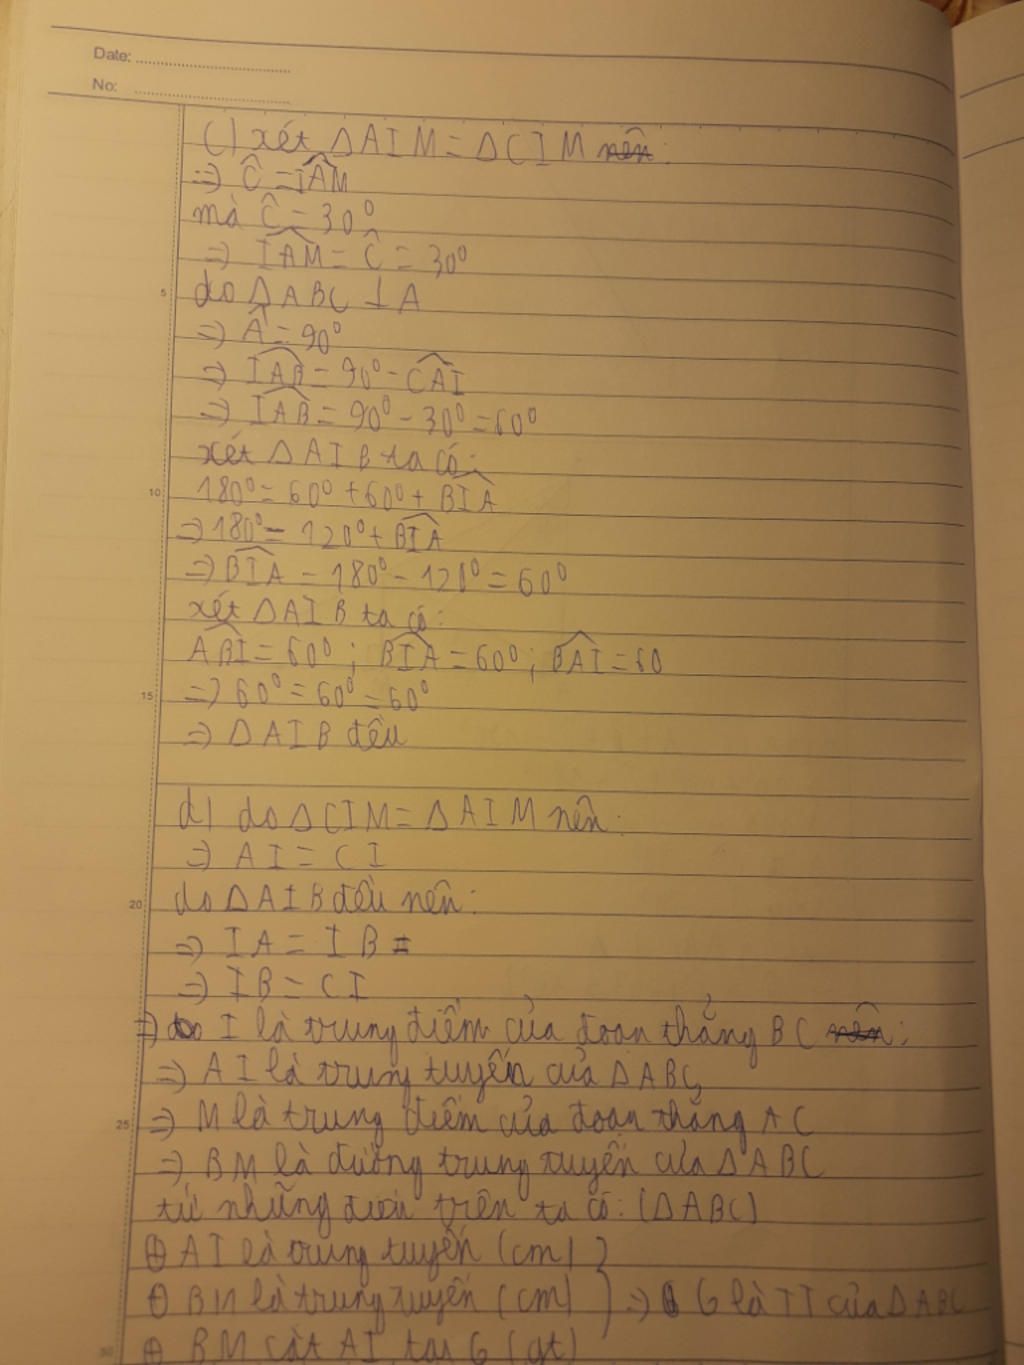 Date:
No:
c) xét ΔAIM = ΔCIM nên:
=> Ĉ = IAM
mà Ĉ = 30⁰
=> IAM = Ĉ = 30⁰
5
do ΔABC ⊥ A
=> Â = 90⁰
=> IAB = 90⁰ - CAI
=> IAB = 90⁰ - 30⁰ = 60⁰
xét ΔAIB ta có:
10
180⁰ = 60⁰ + 60⁰ + BIA
=> 180⁰ = 120⁰ + BIA
=> BIA = 180⁰ - 120⁰ = 60⁰
xét ΔAIB ta có:
ABI = 60⁰ ; BIA = 60⁰ ; BAI = 60
15
=> 60⁰ = 60⁰ = 60⁰
=> ΔAIB đều
d) do ΔCIM = ΔAIM nên:
=> AI = CI
20
do ΔAIB đều nên:
=> IA = IB =
=> IB = CI
=> do I là trung điểm của đoạn thẳng BC nên:
=> AI là trung tuyến của ΔABC
25
=> M là trung điểm của đoạn thẳng AC
=> BM là đường trung tuyến của ΔABC
từ những điều trên ta có: (ΔABC)
⊕ AI là trung tuyến (cm)
⊕ BM là trung tuyến (cm) } => G là TT của ΔABC
30
⊕ BM cắt AI tại G (gt)